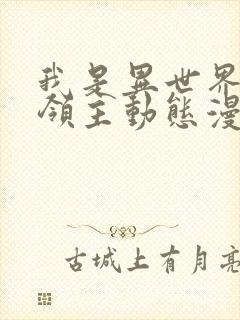 我是異世界
領主動態漫
古城上有月亮